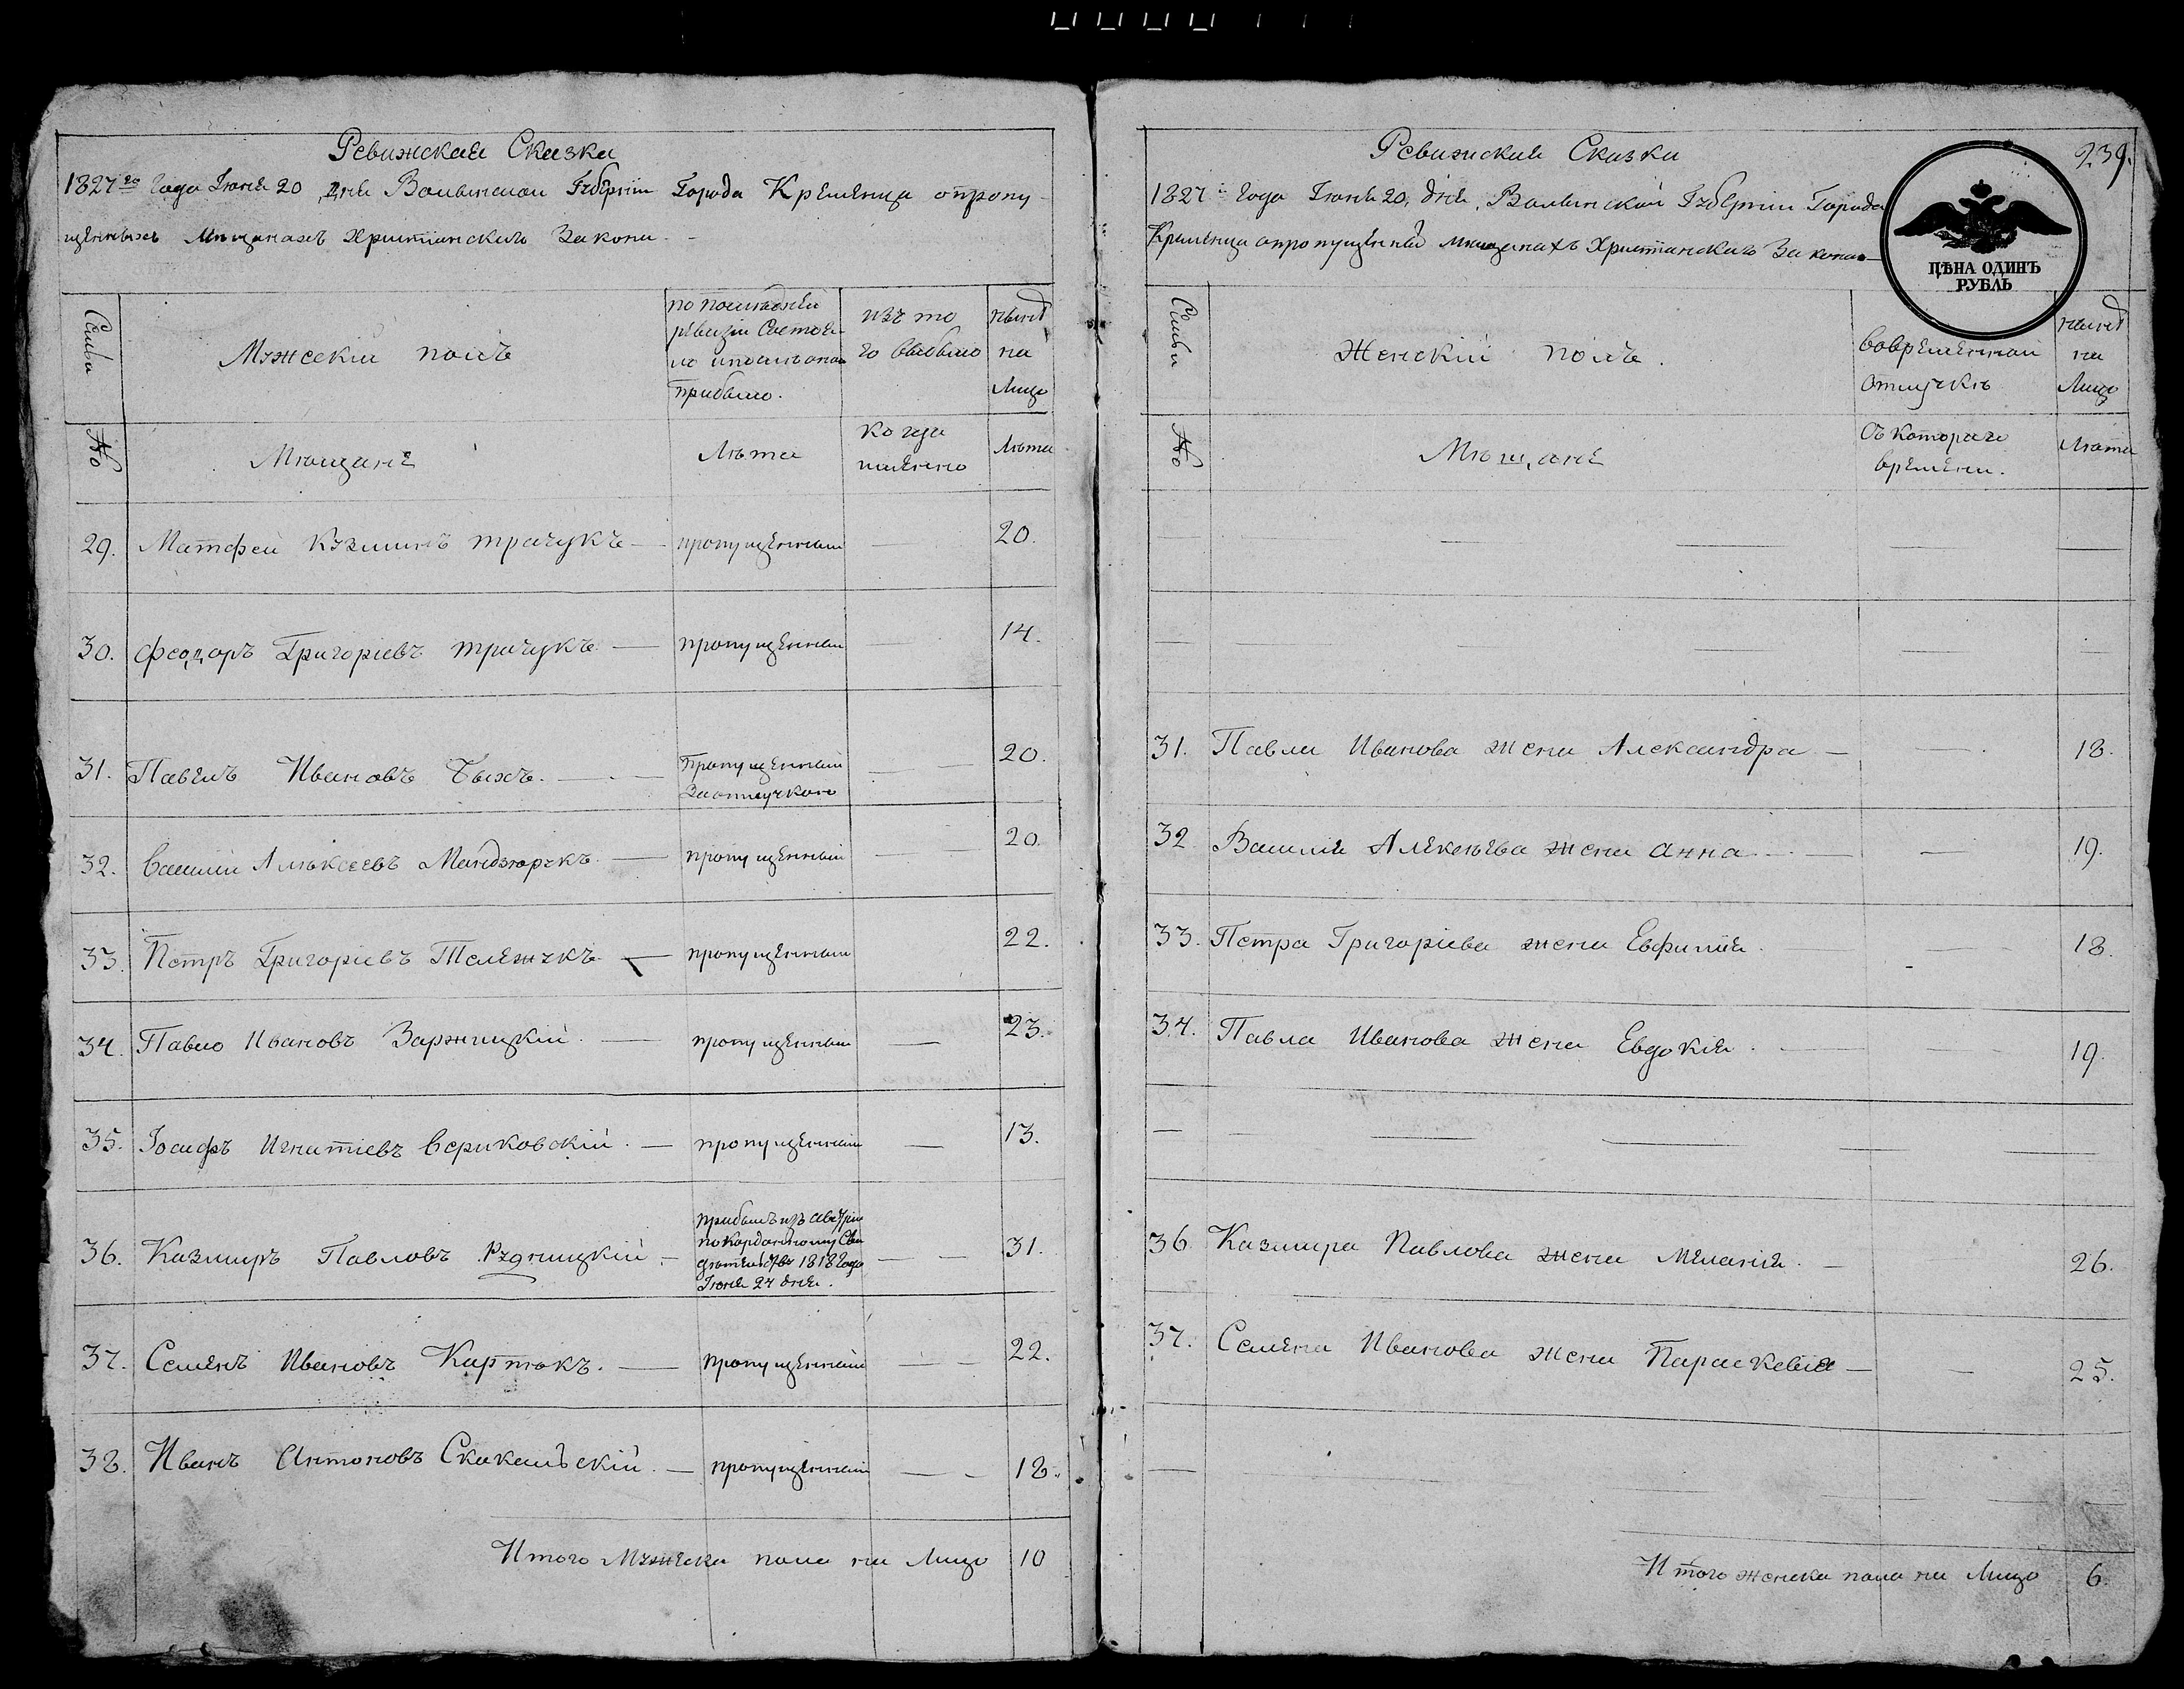 Ревижская Сказка
1827го Года Іюня 20 дня Волынской Губерніи Города Кременца опропу-
щенныхъ Мѣщанахъ Христіанскаго Закона
Семьи
Мужескій полъ
по последней
ревизіи Состоя-
ло и после оной
прибыло.
изъ то
го выбыло
нынѣ
на
Лицо
№
Мѣщане
Лѣта
Когда
именно
Лѣта
29. Матфей Кузминъ трачукъ пропущенный 20.
30. Феодоръ Григоріевъ трачукъ пропущенный 14.
31. Павелъ Ивановъ Пропущенный 20.
За отлучкою
32. Василій Алѣксеевъ Мандзюрукъ пропущенный 20.
33. Петръ Григоріевъ Тележукъ пропущенный 22.
34. Павло Ивановъ Заржицкій пропущенный 23.
35. Іосифъ Игнатіевъ Вериковскій пропущенный 13.
прибылъ изъ Австріи
по кордонному Сви
36. Казмиръ Павловъ Рудницкій 1818 Года 31.
Іюня 24 дня.
37. Семенъ Ивановъ Картокъ. пропущенный 22.
38. Иванъ Антоновъ Скакальскій. пропущенный 18.
Итого Мужеска пола на Лицо 10
Ревижская Сказка
239.
1827 Года Іюня 20, дня, Волынской Губерніи Города
Кременца опропущенныхъ мѣщанахъ Христіанскаго Закона
ЦѢНА ОДИНЪ
РУБЛЬ
Семьи
Женскій полъ.
Вовременной
отлучкѣ
нынѣ
на
Лицо
№
Мѣщане
Съ котораго
времени.
Лѣта
31. Павла Иванова жена Александра 18.
32 Василия Алексѣева жена Анна 19.
33. Петра Григоріева жена Евфимія. 18.
34. Павла Иванова жена Евдокія. 19.
36 Казмира Павлова жена Меланія. 26.
37. Семена Иванова жена Параскевія 25.
Итого женска пола на Лицо 6.